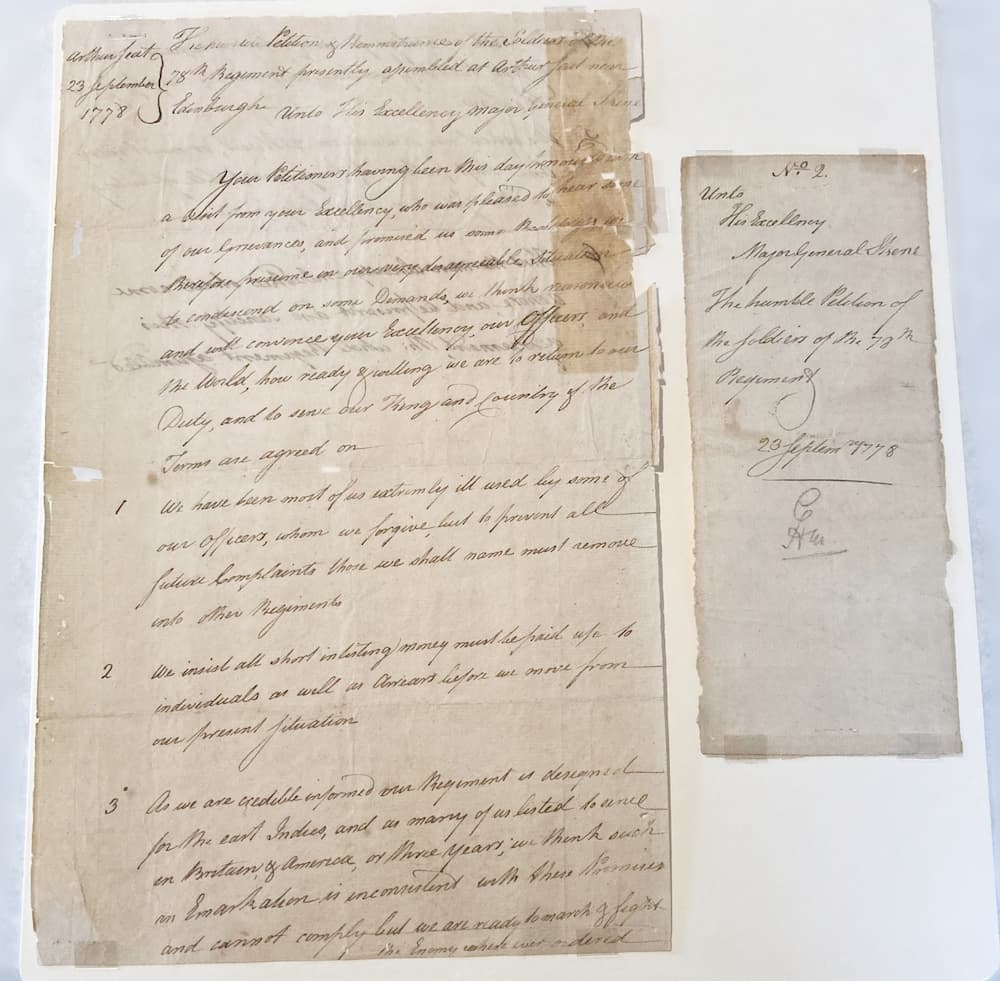 Arthur Seat
23 September
1778
The humble Petition & Remonstrance of the Soldiers of the
78th Regiment presently assembled at Arthur Seat near
Edinburgh Unto His Excellency Major General Skene
Your Petitioners having been this day honoured with
a visit from your Excellency, who was pleased to hear some
of our Grievances, and promised us some Redress, we
therefore presume in our very disagreeable Situation
to condescend on some Demands, we think reasonable
and will convince your Excellency, our Officers, and
the World, how ready & willing we are to return to our
Duty, and to serve our King and Country if the
Terms are agreed on
1 We have been most of us extremly ill used by some of
our Officers, whom we forgive, but to prevent all
future Complaints those we shall name must remove
into other Regiments
2 We insist all short inlisting money must be paid up to
individuals as well as Arrears before we move from
our present Situation
3 As we are credible informed our Regiment is designed
for the east Indies, and as many of us listed to serve
in Britain & America, or three Years, we think such
an Emarkation is inconsistent with these Promises
and cannot comply but we are ready to march & fight
the Enemy where ever ordered
No. 2.
Unto
His Excellency
Major General Skene
The humble Petition of
the Soldiers of the 78th
Regiment
23 Septemr 1778